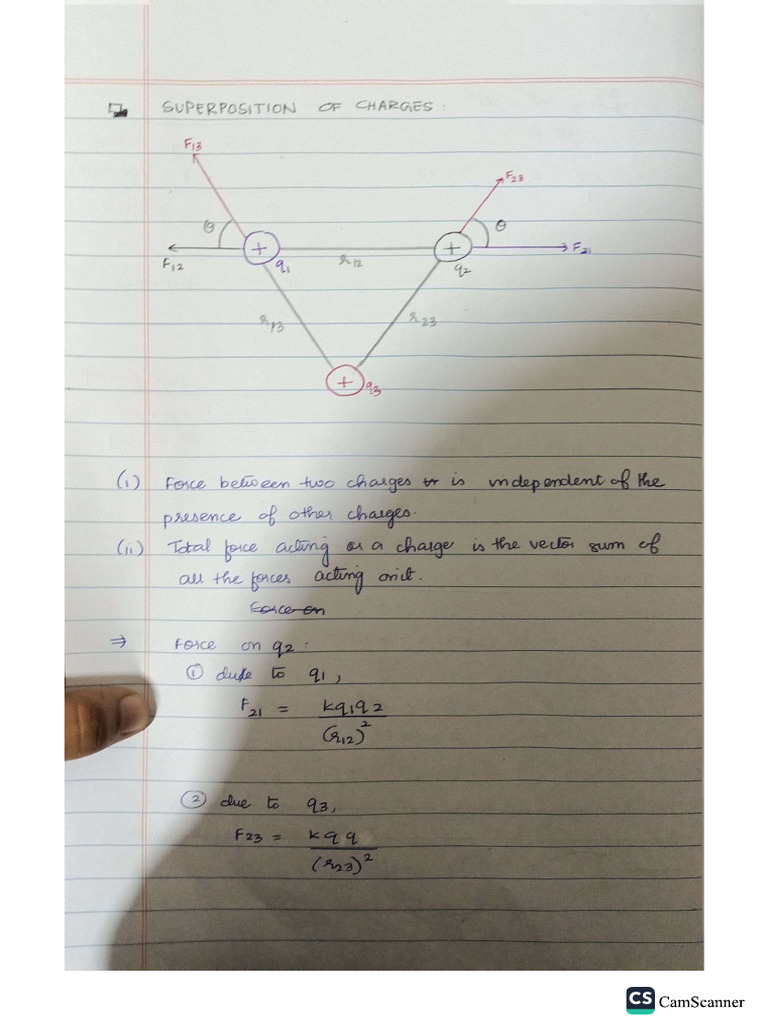 SUPERPOSITION OF CHARGES:
F13
F23
θ
θ
+
+
F12
q1
r12
q2
F21
r13
r23
+
q3
(i) Force between two charges is independent of the
presence of other charges.
(ii) Total force acting on a charge is the vector sum of
all the forces acting on it.
Force on
⇒ Force on q2:
① due to q1,
F21 = kq1q2
(r12)²
② due to q3,
F23 = kqq
(r23)²
CS CamScanner